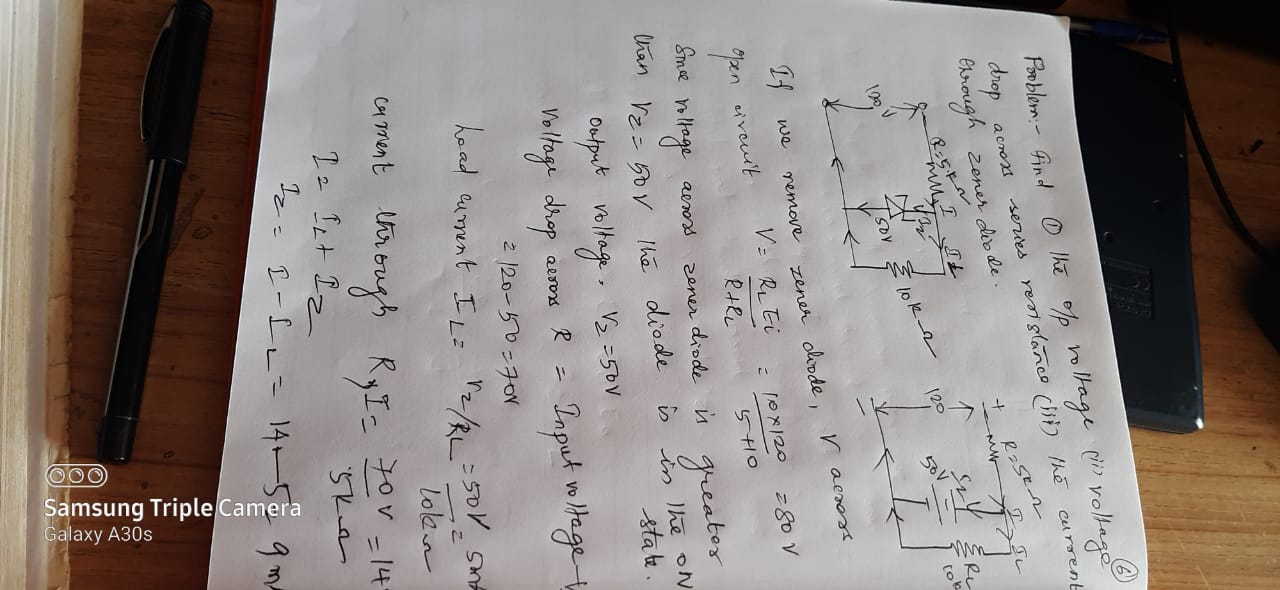 6
Problem:- Find ① the o/p voltage (ii) voltage
drop across series resistance (iii) the current
through zener diode.
R=5kΩ I IL
120 V
Iz
50V
10kΩ
+ R=5kΩ I IL
120
Iz
50V
RL
10k
If we remove zener diode, V across
open circuit V = RL Ei / R+RL = 10×120 / 5+10 = 80V
Since voltage across zener diode is greater
than Vz = 50V the diode is in the ON
state.
output voltage, Vz = 50V
Voltage drop across R = Input voltage - V
= 120-50 = 70V
Load current IL = Vz/RL = 50V / 10kΩ = 5m
current through R, I = 70V / 5kΩ = 14
I = IL + Iz
Iz = I - IL = 14 - 5 = 9m
Samsung Triple Camera
Galaxy A30s